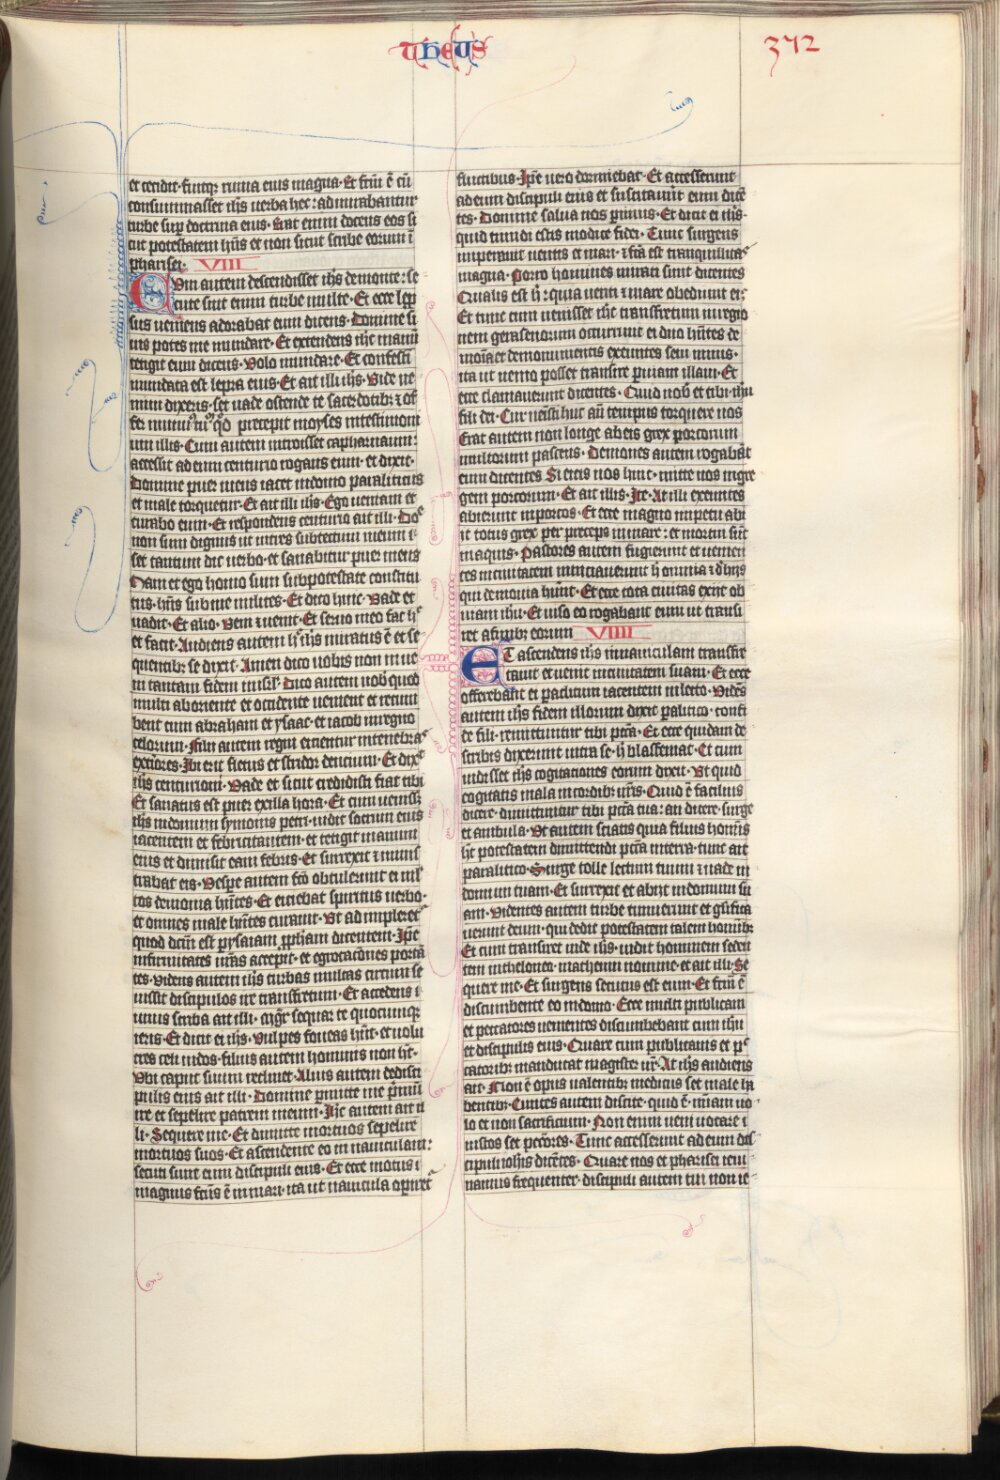 THEUS
372
et cecidit· fuitq; ruina eius magna· Et fctm̄ ē cū
consummasset ihs uerba hec: admirabantur
turbe sup doctrina eius· Erat enim docens eos si
cut potestatem hn̄s et non sicut scribe eorum ⁊
pharisei· VIII
Cum autem descendisset ihs demonte: se
cute sunt eum turbe multe· Et ecce lepͥ
sus ueniens adorabat eum dicens· Domine si
uis potes me mundare· Et extendens ihc manū
tetigit eum dicens· Volo mundare· Et confesti
mundata est lepra eius· Et ait illi ihs· Vide ne
mini dixeris· set uade ostende te sacerdotibz ⁊ of
fer munus tuū qd̄ precepit moyses intestimoni
um illis· Cum autem introisset capharnaum:
accessit ad eum centurio rogans eum· et dixit·
Domine puer meus iacet indomo paraliticus
et male torquetur· Et ait illi ihs· Ego ueniam et
curabo eum· Et respondens centurio ait illi· Do͂
non sum dignus ut intres subtectum meum·
set tantum dic uerbo· et sanabitur puer meus
Nam et ego homo sum subpotestate constitu
tus· hn̄s subme milites· Et dico huic· Vade et
uadit· Et alio· Veni ⁊ uenit· Et seruo meo fac h̄
et facit· Audiens autem h̄ ihs miratus ē et se
quentibz se dixit· Amen dico uobis non inue
ni tantam fidem inisrl̄· Dico autem uob̄ quod
multi aboriente et occidente uenient et recum
bent cum abraham et ysaac· et iacob inregno
celorum· Filii autem regni eicientur intenebras
exteriores· Ibi erit fletus et stridor dencium· Et dixͭ
ihs centurioni· Vade et sicut credidisti fiat tibi
Et sanatus est puer exilla hora· Et cum uenissͭ
ihs indomum symonis petri· uidit socrum eius
iacentem et febricitantem· et tetigit manum
eius et dimisit eam febris· Et surrexit ⁊ minis
trabat eis· Vespe autem fctō obtulerunt ei mł
tos demonia hn̄tes· Et eiciebat spiritus uerbo·
et omnes male hn̄tes curauit· Vt adimpleretͬ
quod dcm̄ est pysaiam ppham dicentem· Ipē
infirmitates nr̄as accepit· et egrotacōnes porta
tes· Videns autem ihs turbas multas circum se
iussit discipulos ire transfretum· Et accedens
unus scriba ait illi· Mgr̄ sequar te quocunq;
ieris· Et dicit ei ihs· Vulpes foueas hn̄t· et uolu
cres celi nidos· filius autem hominis non ht̄·
Vbi caput suum reclinet· Alius autem dediscī
pulis eius ait illi· Domine pmitte me pmū
ire et sepelire patrem meum· Ihc autem ait il
li· Sequere me· Et dimitte mortuos sepelire
mortuos suos· Et ascendente eo in nauiculam:
secuti sunt eum discipuli eius· Et ecce motus
magnus fctū ē in mari· ita ut nauicula opiretͬ
fluctibus· Ipē uero dormiebat· Et accesserunt
ad eum discipuli eius et suscitauūt eum dicē
tes· Domine salua nos pimus· Et dicit ei ihs·
quid timidi estis modice fidei· Tunc surgens
imperauit uentis et mari· ⁊ fctā est tranquillitas
magna· Porro homines mirati sunt dicentes
Qualis est h̄: quia uenti ⁊ mare obediunt ei·
Et cum uenisset ihc transfretum inregio
nem gerasenorum occurrunt ei duo hn̄tes de
monia et demonumentis exeuntes seui nimis·
ita ut nemo posset transire puiam illam· Et
ecce clamauerunt dicentes· Quid nob̄ et tibi· ihū
fili dei· Cur uenisti huc an̄ tempus torquere nos
Erat autem non longe abeis grex porcorum
multorum pascens· Demones autem rogabāt
eum dicentes Si eicis nos hinc· mitte nos ingre
gem porcorum· Et ait illis· Ite· At illi exeuntes
abierunt inporcos· Et ecce magno impetu abi
it totus grex per preceps inmare: et mortui sūt
inaquis· Pastores autem fugierunt et uenien
tes inciuitatem nunciauerunt h̄ omnia ⁊ dhiis
qui demonia hūnt· Et ecce tota ciuitas exiit ob
uiam ihū· Et uiso eo rogabant eum ut transi
ret afinibz eorum VIIII
ET ascendens ihs innauiculam transfre
tauit et uenit inciuitatem suam· Et ecce
offerebant ei paraliticum iacentem inlecto· Vidēs
autem ihs fidem illorum dixit palitico· confi
de fili· remittuntur tibi pctā· Et ecce quidam de
scribis dixerunt intra se· h̄ blasfemat· Et cum
uidisset ihs cogitationes eorum dixit· Vt quid
cogitatis mala incordibz ur̄is· Quid ē facilius
dicere· dimittuntur tibi pctā tua: an dicere· surge
et ambula· Vt autem sciatis quia filius homīs
ht̄ potestatem dimittendi pctā interra· tunc ait
paralitico· Surge tolle lectum tuum ⁊ uade in
domum tuam· Et surrexit et abiit indomum su
am· Videntes autem turbe timuerunt et glīfica
uerunt deum· qui dedit potestatem talem homībz
Et cum transiret inde ihs· uidit hominem seden
tem intheloneo· matheum nomine· et ait illi· Se
quere me· Et surgens secutus est eum· Et fctm̄ ē
discumbente eo indomo· Ecce multi publicani
et peccatores uenientes discumbebant cum ihū
et discipulis eius· Quare cum publicanis et pͨ
catoribz manducat magister ur̄· At ihs audiens
ait· Non ē opus ualentibz medicus set male ha
bentibz· Euntes autem discite· quid ē· mīam uo
lo et non sacrificium· Non enim ueni uocare i
ustos set pctōres· Tunc accesserunt ad eum dis
cipuli ioh̄is dicētes· Quare nos et pharisei ieiu
namus frequenter· discipuli autem tui non ie